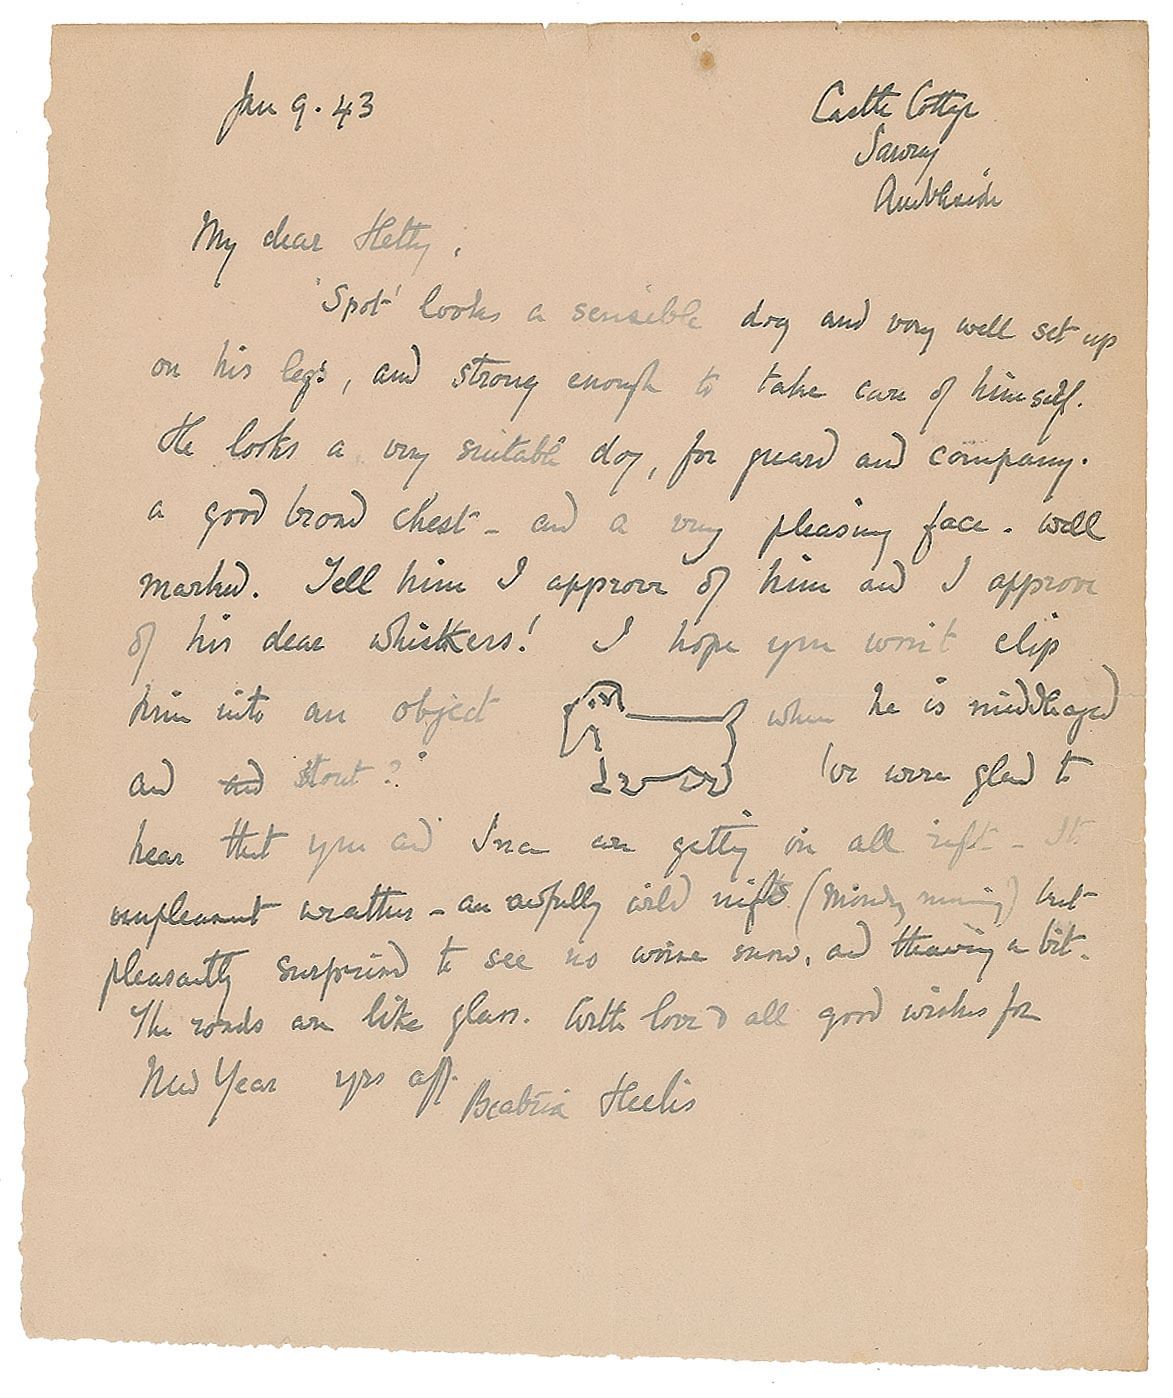 Jan 9. 43
Castle Cottage
Sawrey
Ambleside
My dear Hetty,
'Spot' looks a sensible dog and very well set up
on his legs, and strong enough to take care of himself.
He looks a very suitable dog, for guard and company.
a good broad chest - and a very pleasing face. well
marked. Tell him I approve of him and I approve
of his dear whiskers! I hope you won't clip
him into an object when he is middleaged
and and stout? We were glad to
hear that you and are getting on all right - It
unpleasant weather - an awfully wild night (Monday morning) but
pleasantly surprised to see no worse snow, and thawing a bit.
The roads are like glass. With love & all good wishes for
New Year yrs aff. Beatrix Heelis